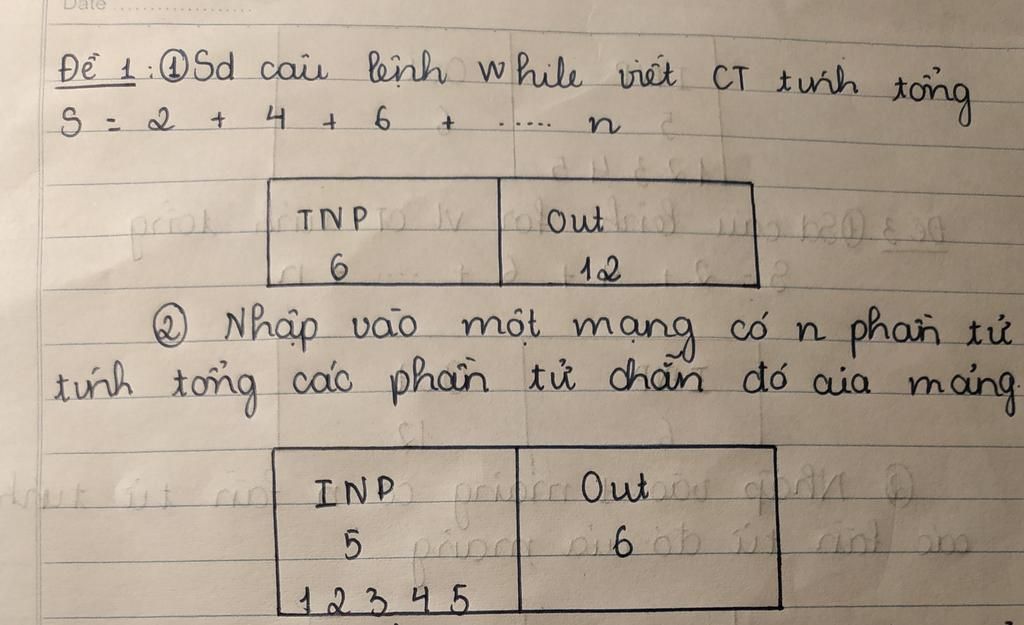 Date
Đề 1: ① Sd câu lệnh While viết CT tính tổng
S = 2 + 4 + 6 + ..... n
INP Out
6 12
② Nhập vào một mảng có n phần tử
tính tổng các phần tử chẵn đó của mảng.
INP Out
5 6
1 2 3 4 5